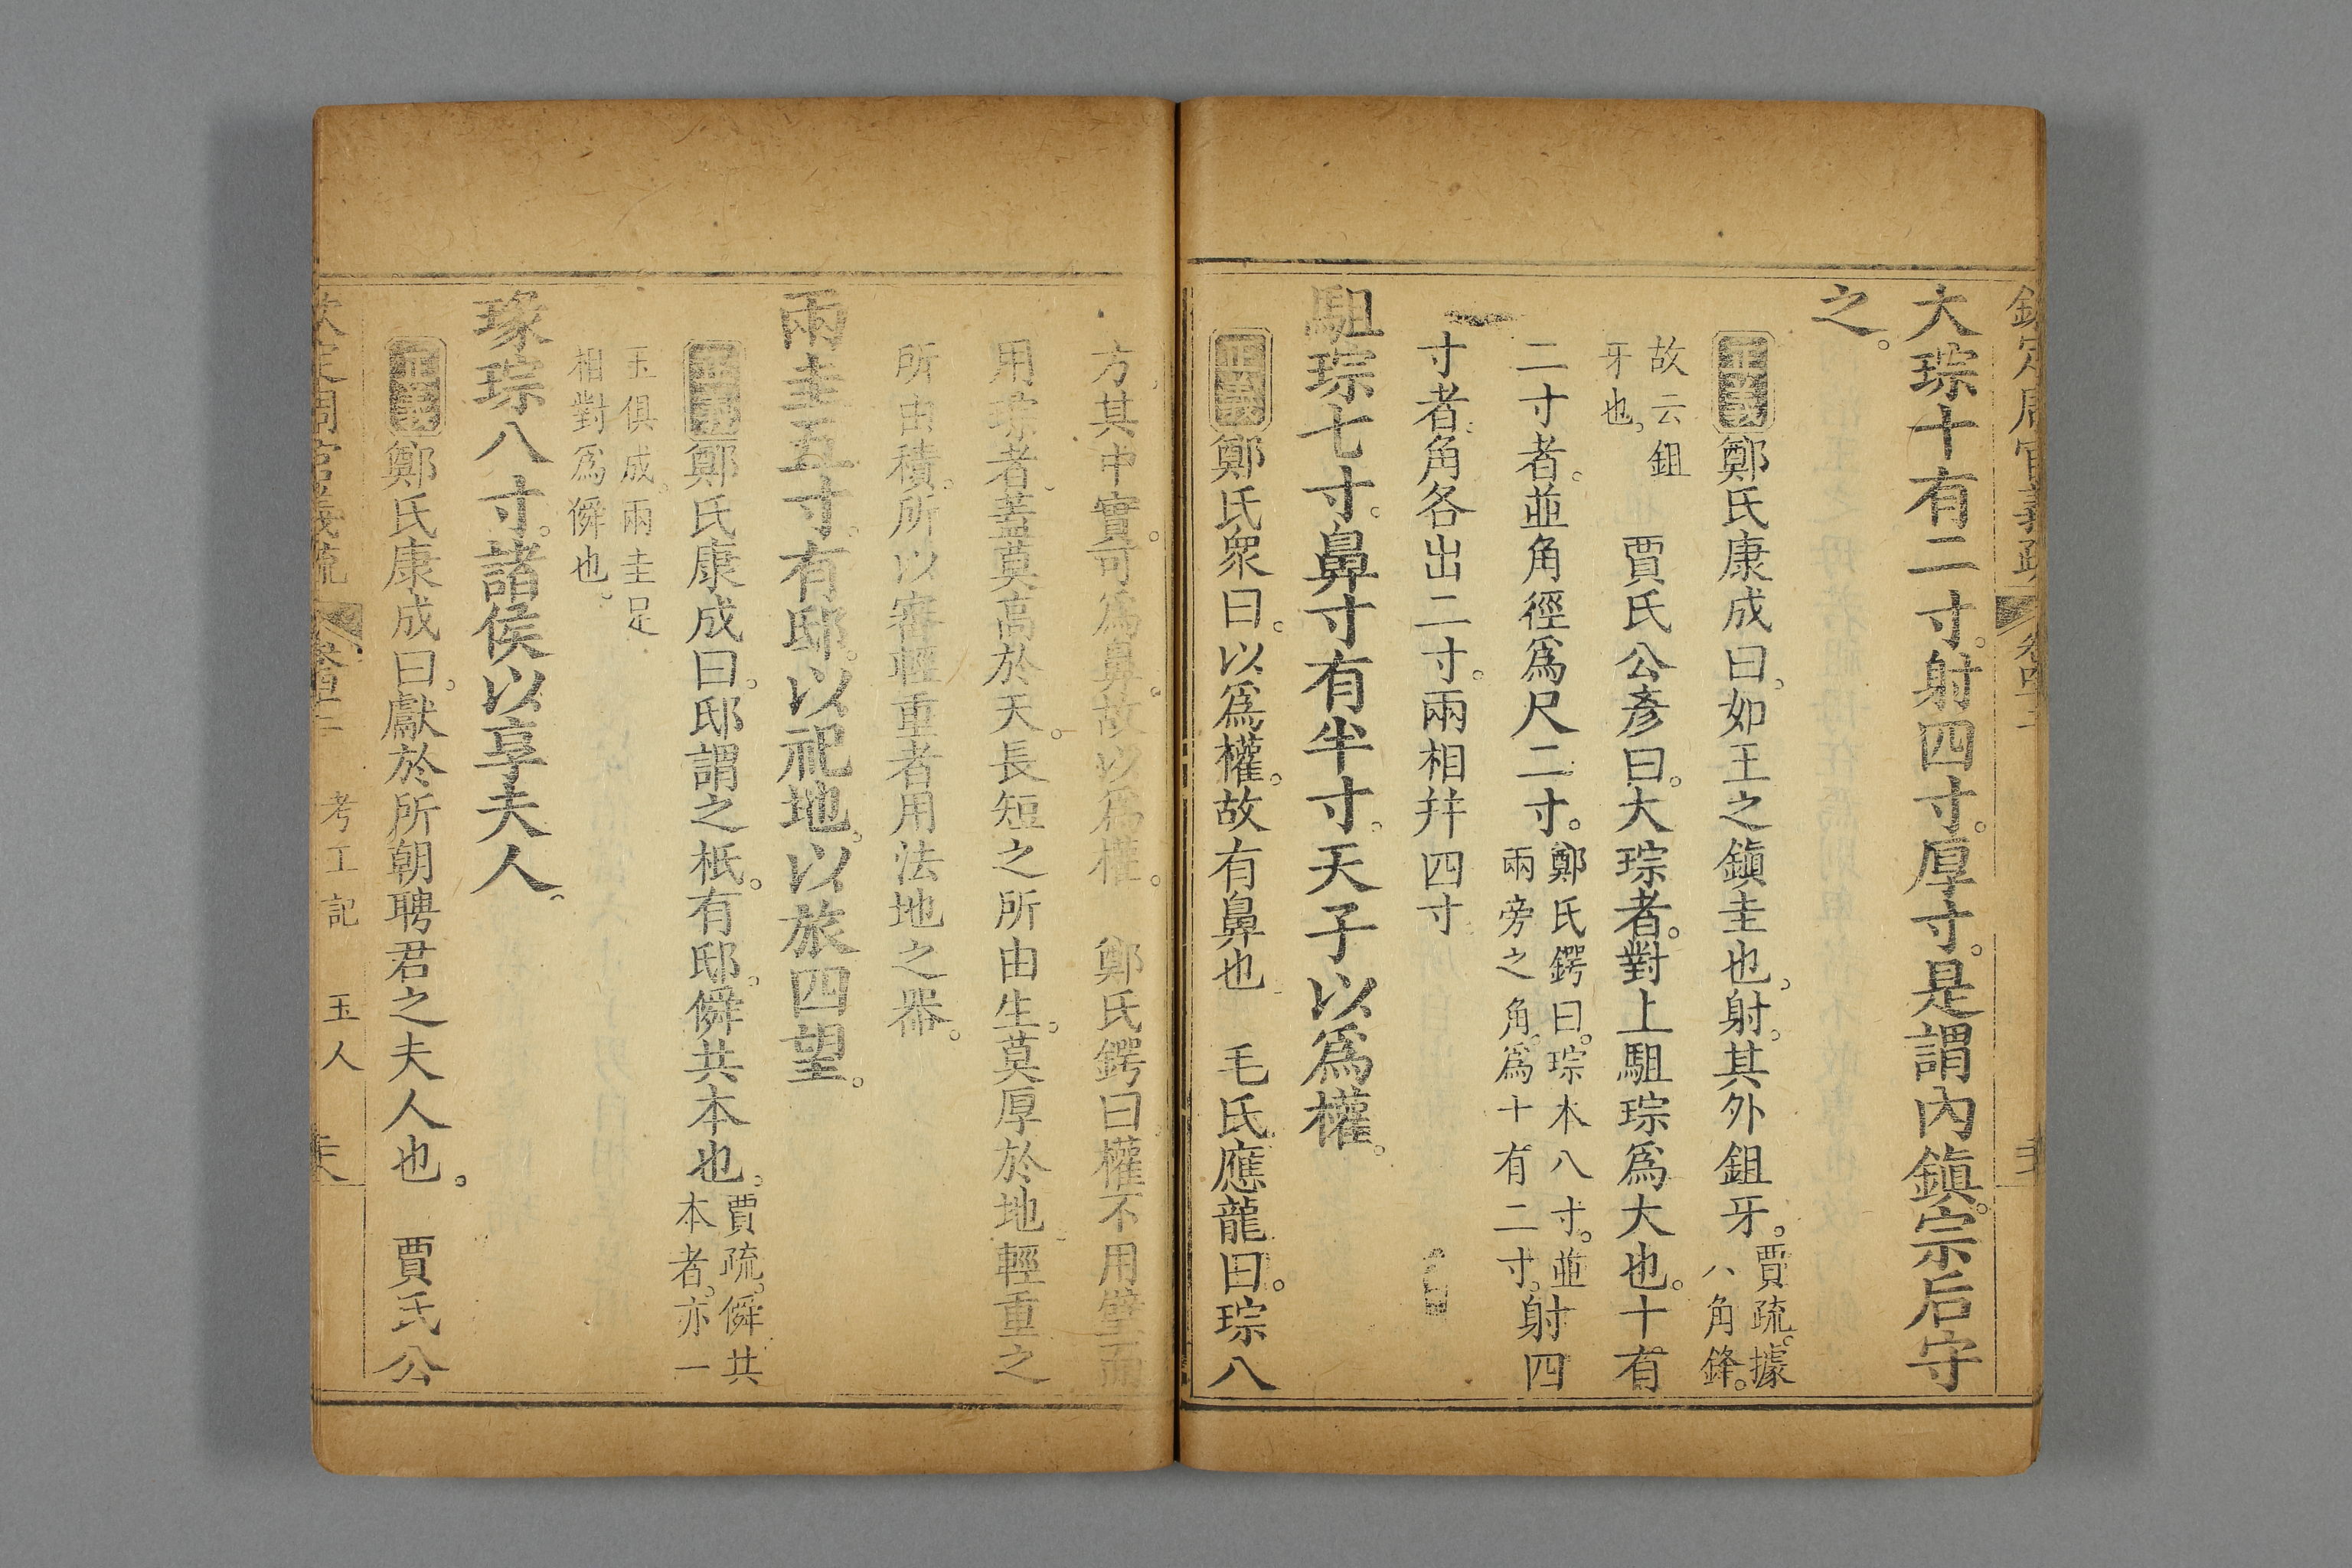 欽定周官義疏 卷四十
大琮十有二寸。射四寸。厚寸。是謂內鎮。宗后守
之。
正義 鄭氏康成曰。如王之鎮圭也。射。其外鉏牙。賈疏。據八角鋒。
故云鉏牙也。 賈氏公彥曰。大琮者。對上駔琮爲大也。十有
二寸者。並角徑爲尺二寸。鄭氏鍔曰。琮本八寸。並兩旁之角。爲十有二寸。射四
寸者。角各出二寸。兩相幷四寸
駔琮七寸。鼻寸有半寸。天子以爲權。
正義 鄭氏衆曰。以爲權。故有鼻也 毛氏應龍曰。琮八
方。其中實。可爲鼻。故以爲權。 鄭氏鍔曰權不用璧而
用琮者。蓋莫高於天。長短之所由生。莫厚於地輕重之
所由積。所以審輕重者用法地之器。
兩圭五寸。有邸。以祀地。以旅四望。
正義 鄭氏康成曰。邸謂之柢。有邸。僢共本也。賈疏。僢共本者。亦一
玉俱成。兩圭足相對爲僢也。
瑑琮八寸。諸侯以享夫人。
正義 鄭氏康成曰。獻於所朝聘君之夫人也。 賈氏公
欽定周官義疏 考工記 玉人